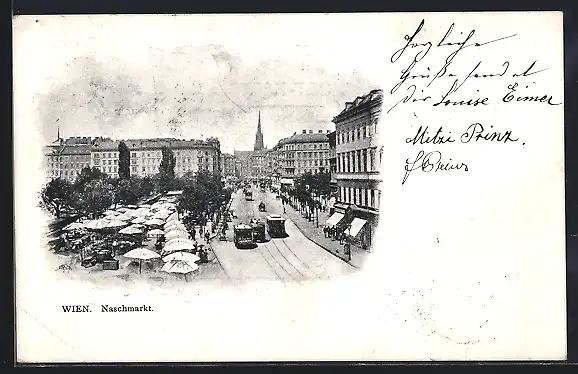 Herzliche
Grüße sendet
der Louise Eimer
Mitzi Prinz.
WIEN. Naschmarkt.